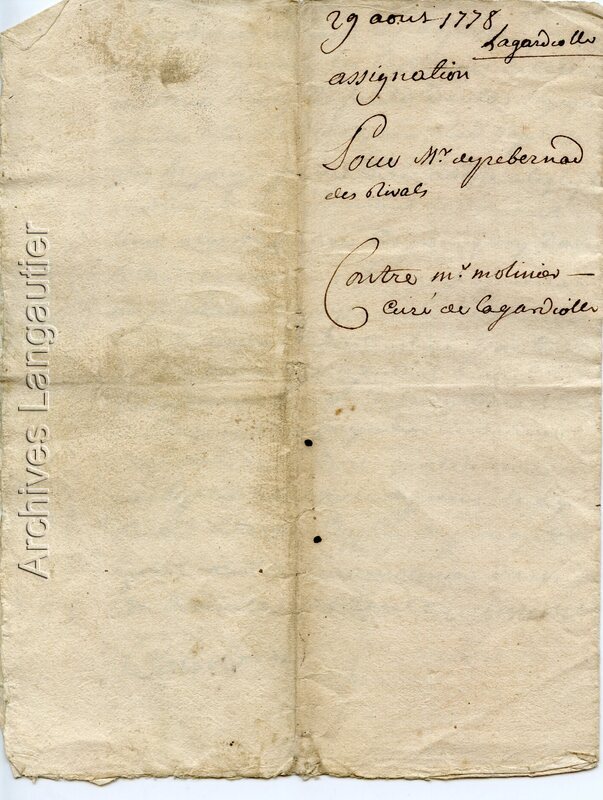 29 aout 1778
Lagardiolle
assignation
Pour Mr. deyrebernad
des Rivals
Contre mr. molinier
Curé de Lagardiolle
Archives Langautier